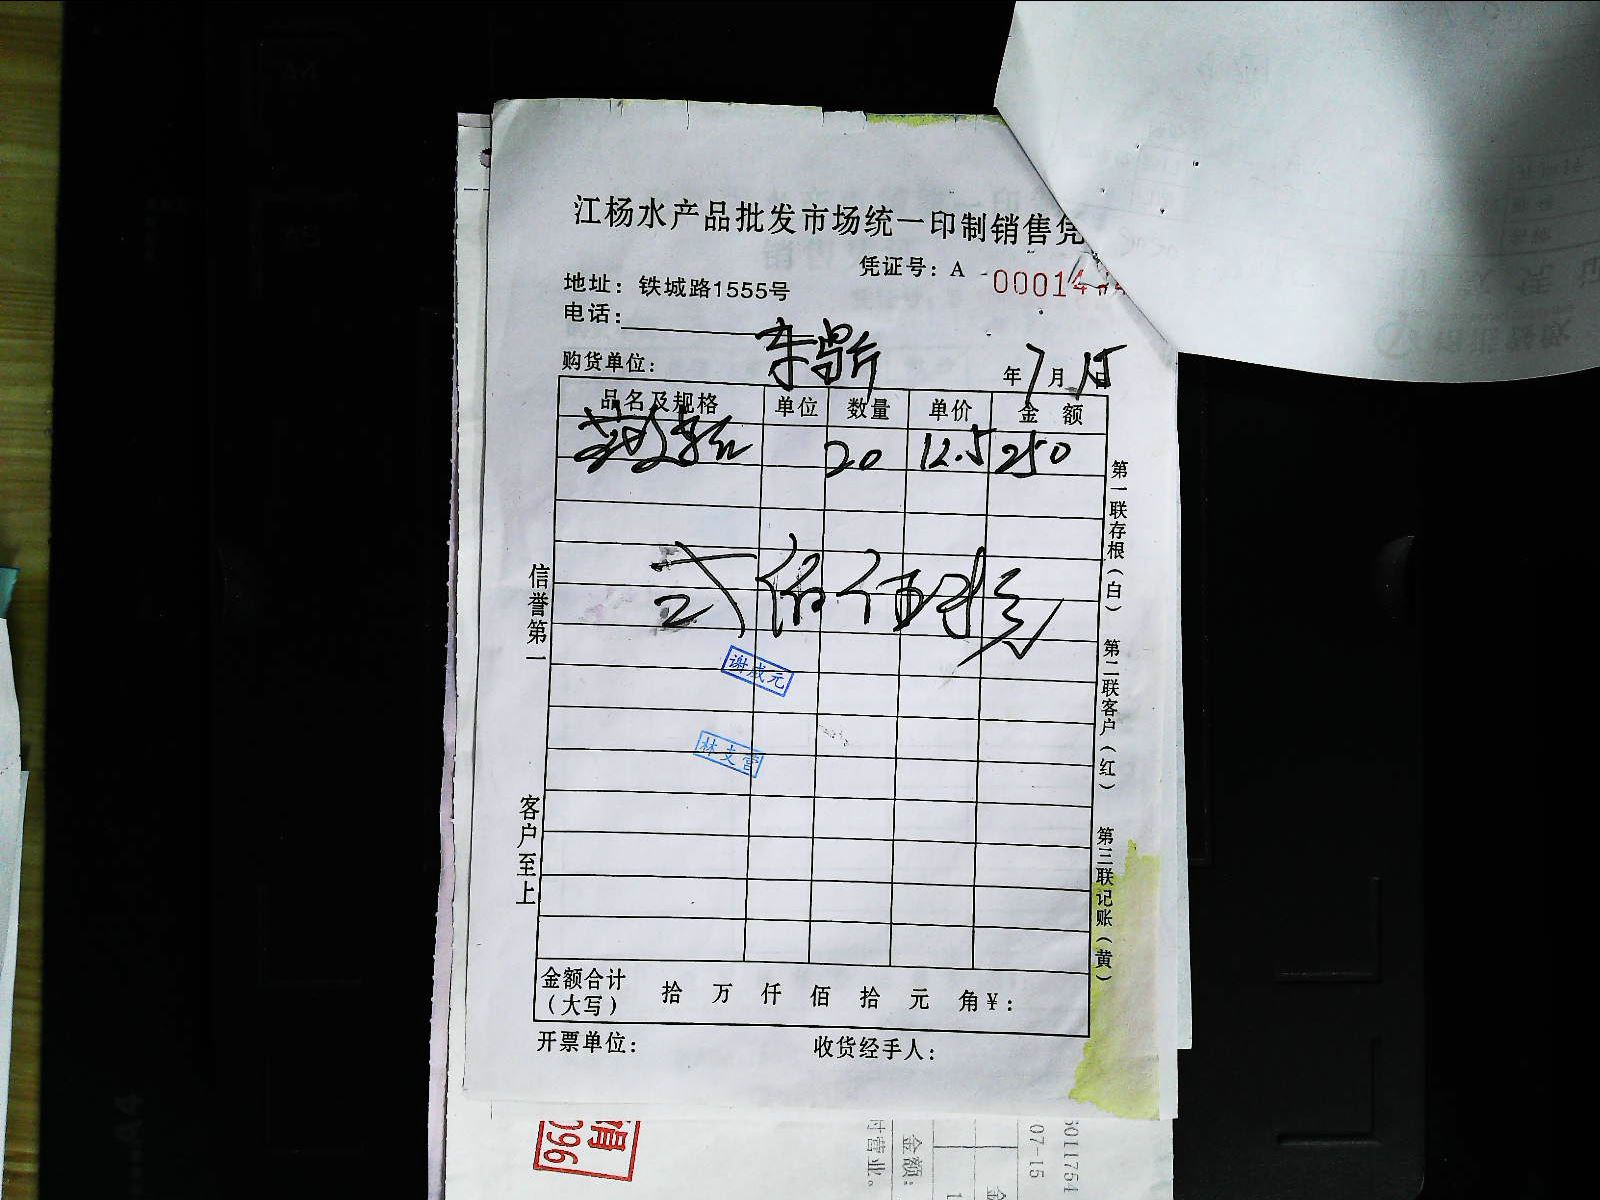 江杨水产品批发市场统一印制销售凭
凭证号：A 00014
地址：铁城路1555号
电话：
购货单位：
年7月15日
品名及规格 单位 数量 单价 金额
20 12.5 250
弍佰伍拾元
谢成元
林文营
信誉第一
客户至上
第一联存根（白）
第二联客户（红）
第三联记账（黄）
金额合计（大写） 拾 万 仟 佰 拾 元 角 ¥：
开票单位：
收货经手人：
096
时营业。
金额：
07-15
6011754
A4